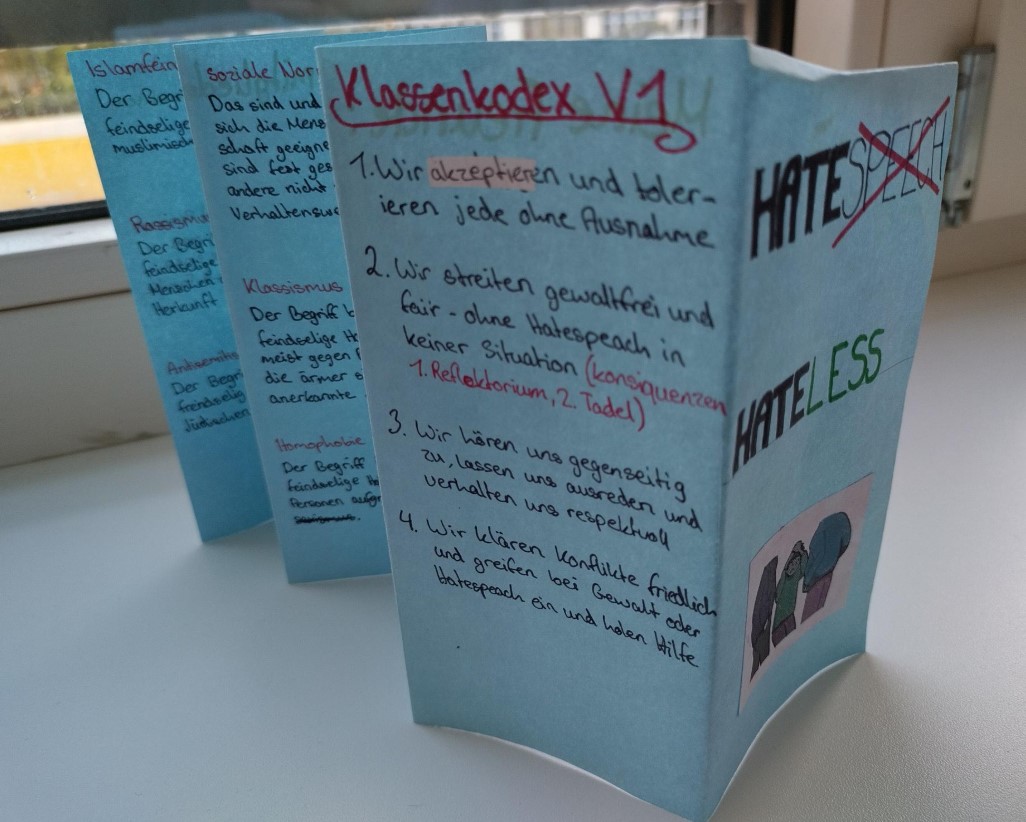 Islamfein
Der Begr
feindselige
muslimisch
Rassismus
Der Begri
feindselige
Menschen
Herkunft
Antisemitis
Der Begr
feindselig
Jüdischen
soziale Nor
Das sind und
sich die Mens
schaft geeigne
sind fest ges
andere nicht
Verhaltenswe
Klassismus
Der Begriff b
feindselige H
meist gegen
die ärmer s
anerkannte
Homophobie
Der Begriff
feindselige Ha
Personen aufgr
Klassenkodex V1
1. Wir akzeptieren und toler-
ieren jede ohne Ausnahme
2. Wir streiten gewaltfrei und
fair - ohne Hatespeach in
keiner Situation (konsiquenzen
1. Reflektorium, 2. Tadel)
3. Wir hören uns gegenseitig
zu, lassen uns ausreden und
verhalten uns respektvoll
4. Wir klären Konflikte friedlich
und greifen bei Gewalt oder
Hatespeach ein und holen Hilfe
HATESPEECH
HATELESS